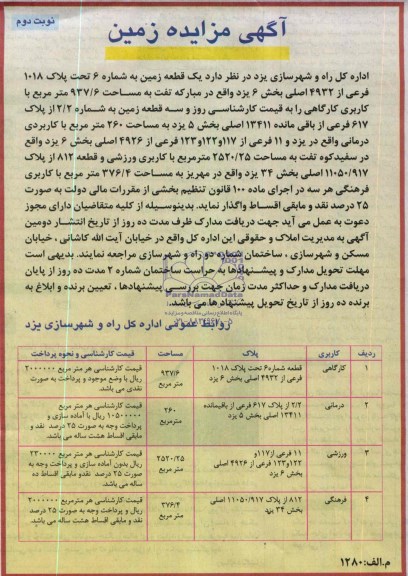 نوبت دوم
آگهی مزایده زمین
اداره کل راه و شهرسازی یزد در نظر دارد یک قطعه زمین به شماره ۶ تحت پلاک ۱۰۱۸
فرعی از ۴۹۳۲ اصلی بخش ۶ یزد واقع در مبارکه تفت به مساحت ۹۳۷/۶ متر مربع با
کاربری کارگاهی را به قیمت کارشناسی روز و سه قطعه زمین به شماره ۲/۲ از پلاک
۶۱۷ فرعی از باقی مانده ۱۳۴۱۱ اصلی بخش ۵ یزد به مساحت ۲۶۰ متر مربع با کاربردی
درمانی واقع در یزد و ۱۱ فرعی از ۱۱۷و۱۲۲و۱۲۳ فرعی از ۴۹۲۶ اصلی بخش ۶ یزد واقع
در سفیدکوه تفت به مساحت ۲۵۲۰/۲۵ مترمربع با کاربری ورزشی و قطعه ۸۱۲ از پلاک
۱۱۰۵۰/۹۱۷ اصلی بخش ۳۴ یزد واقع در مهریز به مساحت ۳۷۶/۴ متر مربع با کاربری
فرهنگی هر سه در اجرای ماده ۱۰۰ قانون تنظیم بخشی از مقررات مالی دولت به صورت
۲۵ درصد نقد و مابقی اقساط واگذار نماید. بدینوسیله از کلیه متقاضیان دارای مجوز
دعوت به عمل می آید جهت دریافت مدارک ظرف مدت ده روز از تاریخ انتشار دومین
آگهی به مدیریت املاک و حقوقی این اداره کل واقع در خیابان آیت الله کاشانی ، خیابان
مسکن و شهرسازی ، ساختمان شماره دو راه و شهرسازی مراجعه نمایند. بدیهی است
مهلت تحویل مدارک و پیشنهادها به حراست ساختمان شماره ۲ مدت ده روز از پایان
دریافت مدارک و حداکثر مدت زمان جهت بررسی پیشنهادها ، تعیین برنده و ابلاغ به
برنده ده روز از تاریخ تحویل پیشنهاد ها می باشد.
ParsNamadData
روابط عمومی اداره کل راه و شهرسازی یزد
ردیف کاربری پلاک مساحت قیمت کارشناسی و نحوه پرداخت
۱ کارگاهی قطعه شماره۶ تحت پلاک ۱۰۱۸ ۹۳۷/۶ قیمت کارشناسی هر متر مربع ۲۰۰۰۰۰۰
فرعی از ۴۹۳۲ اصلی بخش ۶ یزد متر مربع ریال با وضع موجود و پرداخت به صورت
نقدی می باشد.
۲ درمانی ۲/۲ از پلاک ۶۱۷ فرعی از باقیمانده ۲۶۰ قیمت کارشناسی هر متر مربع
۱۳۴۱۱ اصلی بخش ۵ یزد مترمربع ۱۰۵۰۰۰۰۰ ریال با آماده سازی و
پرداخت وجه به صورت ۲۵ درصد نقد و
مابقی اقساط هشت ساله می باشد.
۳ ورزشی ۱۱ فرعی از۱۱۷و ۲۵۲۰/۲۵ قیمت کارشناسی هر مترمربع ۲۳۰۰۰۰
۱۲۲و۱۲۳ فرعی از ۴۹۲۶ اصلی متر مربع ریال بدون آماده سازی و پرداخت وجه به
بخش ۶ یزد صورت ۲۵ درصد نقدو مابقی اقساط ده
ساله می باشد.
۴ فرهنگی ۸۱۲ از پلاک ۱۱۰۵۰/۹۱۷ اصلی ۳۷۶/۴ قیمت کارشناسی هر مترمربع ۳۰۰۰۰۰۰
بخش ۳۴ یزد متر مربع ریال و پرداخت وجه به صورت ۲۵ درصد
نقد و مابقی اقساط هشت ساله می باشد.
م.الف:۱۲۸۰